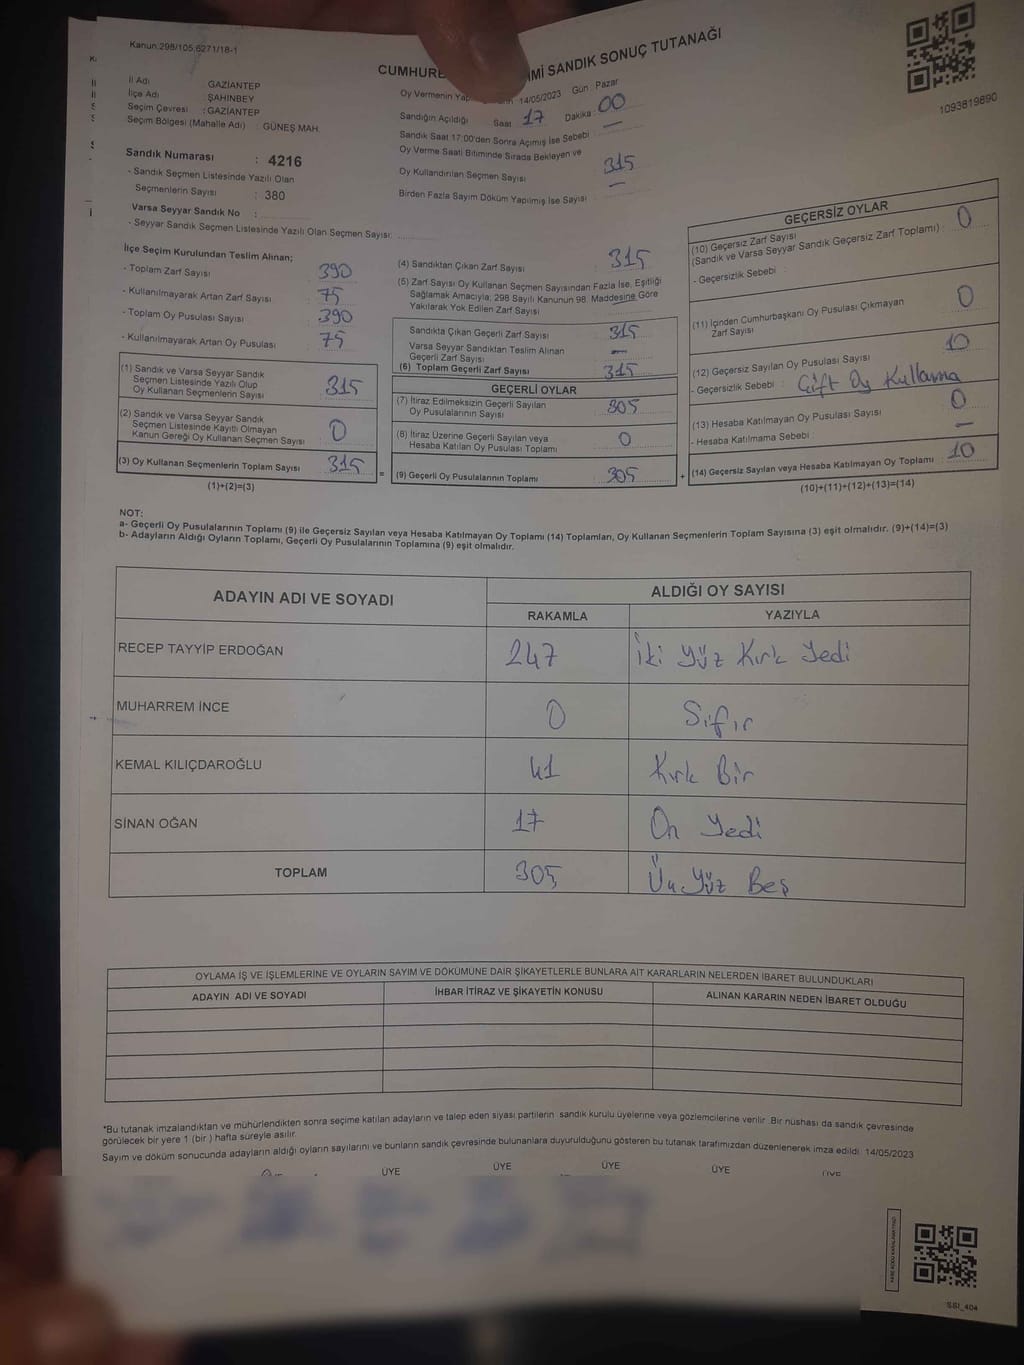 Kanun:298/105,6271/18-1
CUMHURE
İMİ SANDIK SONUÇ TUTANAĞI
1093619890
İl Adı : GAZİANTEP
İlçe Adı : ŞAHİNBEY
Seçim Çevresi : GAZİANTEP
Seçim Bölgesi (Mahalle Adı) : GÜNEŞ MAH.
Sandık Numarası : 4216
- Sandık Seçmen Listesinde Yazılı Olan
Seçmenlerin Sayısı : 380
Varsa Seyyar Sandık No :
- Seyyar Sandık Seçmen Listesinde Yazılı Olan Seçmen Sayısı:
Oy Vermenin 14/05/2023 Gün : Pazar
Sandığın Açıldığı Saat 17 Dakika : 00
Sandık Saat 17:00'den Sonra Açımış İse Sebebi : —
Oy Verme Saati Bitiminde Sırada Bekleyen ve
Oy Kullandırılan Seçmen Sayısı : 315
Birden Fazla Sayım Döküm Yapılmış İse Sayısı : —
İlçe Seçim Kurulundan Teslim Alınan;
- Toplam Zarf Sayısı : 390
- Kullanılmayarak Artan Zarf Sayısı : 75
- Toplam Oy Pusulası Sayısı : 390
- Kullanılmayarak Artan Oy Pusulası : 75
(1) Sandık ve Varsa Seyyar Sandık
Seçmen Listesinde Yazılı Olup
Oy Kullanan Seçmenlerin Sayısı : 315
(2) Sandık ve Varsa Seyyar Sandık
Seçmen Listesinde Kayıtlı Olmayan
Kanun Gereği Oy Kullanan Seçmen Sayısı : 0
(3) Oy Kullanan Seçmenlerin Toplam Sayısı : 315
(1)+(2)=(3)
(4) Sandıktan Çıkan Zarf Sayısı : 315
(5) Zarf Sayısı Oy Kullanan Seçmen Sayısından Fazla İse, Eşitliği
Sağlamak Amacıyla; 298 Sayılı Kanunun 98. Maddesine Göre
Yakılarak Yok Edilen Zarf Sayısı :
Sandıkta Çıkan Geçerli Zarf Sayısı : 315
Varsa Seyyar Sandıktan Teslim Alınan
Geçerli Zarf Sayısı : —
(6) Toplam Geçerli Zarf Sayısı : 315
GEÇERLİ OYLAR
(7) İtiraz Edilmeksizin Geçerli Sayılan
Oy Pusulalarının Sayısı : 305
(8) İtiraz Üzerine Geçerli Sayılan veya
Hesaba Katılan Oy Pusulası Toplamı : 0
=
(9) Geçerli Oy Pusulalarının Toplamı : 305
+
GEÇERSİZ OYLAR
(10) Geçersiz Zarf Sayısı
(Sandık ve Varsa Seyyar Sandık Geçersiz Zarf Toplamı) : 0
- Geçersizlik Sebebi :
(11) İçinden Cumhurbaşkanı Oy Pusulası Çıkmayan
Zarf Sayısı : 0
(12) Geçersiz Sayılan Oy Pusulası Sayısı : 10
- Geçersizlik Sebebi : Çift Oy Kullanma
(13) Hesaba Katılmayan Oy Pusulası Sayısı : 0
- Hesaba Katılmama Sebebi : —
(14) Geçersiz Sayılan veya Hesaba Katılmayan Oy Toplamı : 10
(10)+(11)+(12)+(13)=(14)
NOT:
a- Geçerli Oy Pusulalarının Toplamı (9) ile Geçersiz Sayılan veya Hesaba Katılmayan Oy Toplamı (14) Toplamları, Oy Kullanan Seçmenlerin Toplam Sayısına (3) eşit olmalıdır. (9)+(14)=(3)
b- Adayların Aldığı Oyların Toplamı, Geçerli Oy Pusulalarının Toplamına (9) eşit olmalıdır.
ADAYIN ADI VE SOYADI
ALDIĞI OY SAYISI
RAKAMLA YAZIYLA
RECEP TAYYİP ERDOĞAN 247 İki Yüz Kırk Yedi
MUHARREM İNCE 0 Sıfır
KEMAL KILIÇDAROĞLU 41 Kırk Bir
SİNAN OĞAN 17 On Yedi
TOPLAM 305 Üç Yüz Beş
OYLAMA İŞ VE İŞLEMLERİNE VE OYLARIN SAYIM VE DÖKÜMÜNE DAİR ŞİKAYETLERLE BUNLARA AİT KARARLARIN NELERDEN İBARET BULUNDUKLARI
ADAYIN ADI VE SOYADI İHBAR İTİRAZ VE ŞİKAYETİN KONUSU ALINAN KARARIN NEDEN İBARET OLDUĞU
*Bu tutanak imzalandıktan ve mühürlendikten sonra seçime katılan adayların ve talep eden siyasi partilerin sandık kurulu üyelerine veya gözlemcilerine verilir. Bir nüshası da sandık çevresinde
görülecek bir yere 1 (bir ) hafta süreyle asılır.
Sayım ve döküm sonucunda adayların aldığı oyların sayılarını ve bunların sandık çevresinde bulunanlara duyurulduğunu gösteren bu tutanak tarafımızdan düzenlenerek imza edildi. 14/05/2023
ÜYE ÜYE ÜYE ÜYE ÜYE
SSI_404